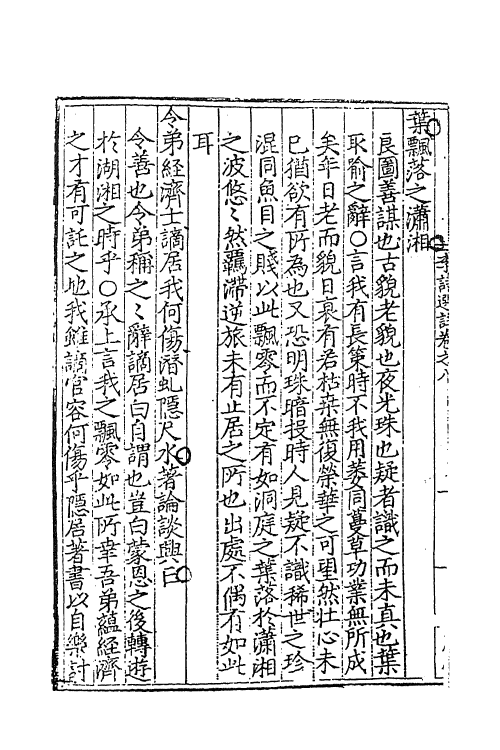 葉飄落之瀟湘
良圖善謀也古貌老貌也夜光珠也疑者識之而未真也葉
取喻之辭○言我有長策時不我用萎同蔓草功業無所成
矣年日老而貌日衰有君枯桑無復榮華之可望然壯心未
已猶欲有所為也又恐明珠暗投時人見疑不識稀世之珍
混同魚目之賤以此飄零而不定有如洞庭之葉落於瀟湘
之波悠〻然羈滯逆旅未有止居之所也出處不偶有如此
耳
令弟經濟士謫居我何傷潛虬隱尺水著論談興亡
令善也令弟稱之〻辭謫居白自謂也豈白蒙恩之後轉遊
於湖湘之時乎○承上言我之飄零如此所幸吾弟蘊經濟
之才有可託之地我雖謫官容何傷乎隱居著書以自樂討
李詩選註卷之八